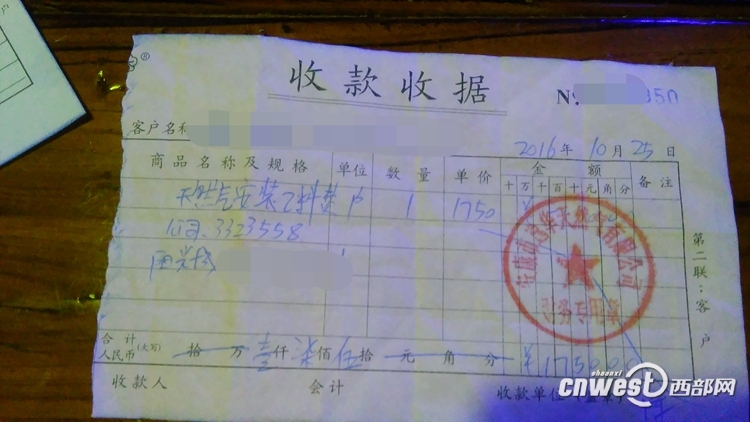 收款收据
№ 350
客户名称
2016年10月25日
商品名称及规格 单位 数量 单价 金额 备注
十万千百十元角分
天然气安装 费 户 1 1750
公司: 3323558
合计人民币(大写) 拾 万 壹仟 柒佰 伍拾 元 角 分 ¥175000
第二联:客户
财务专用章
收款人 会计 收款单位
shaanxi
cnwest西部网